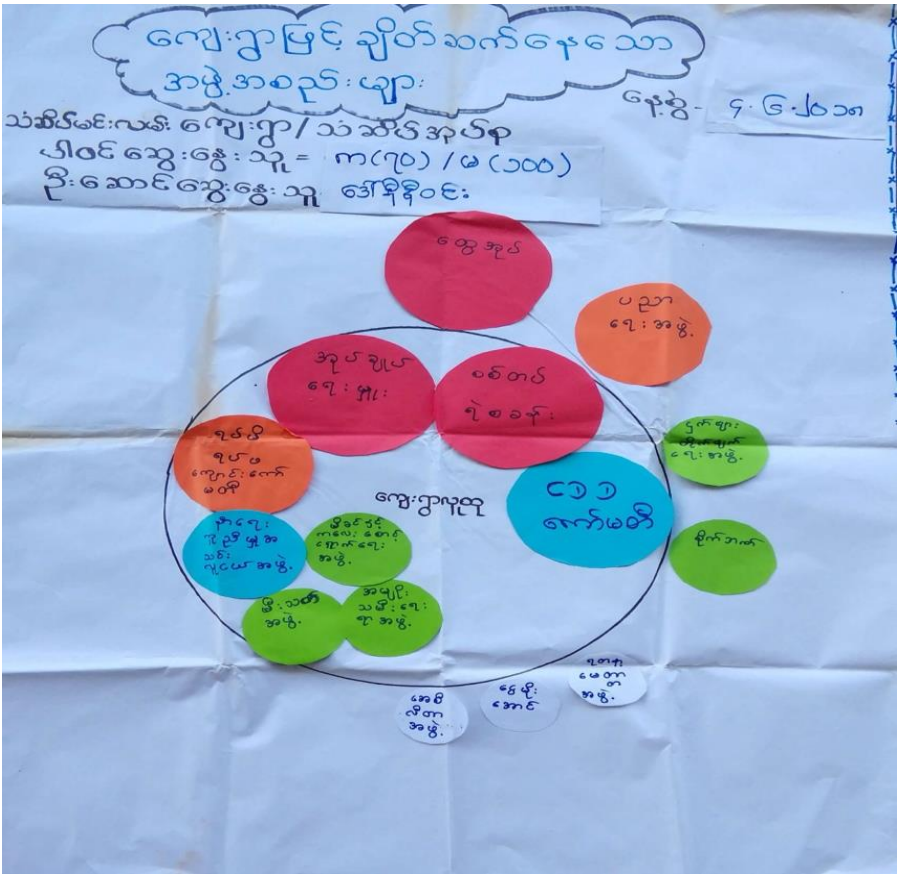 ကျေးရွာဖြင့် ချိတ်ဆက်နေသော
အဖွဲ့အစည်းများ
နေ့စွဲ- ၄.၆.၂၀၁၈
သံဆိပ်မင်းလမ်း ကျေးရွာ/သံဆိပ်အုပ်စု
ပါဝင်ဆွေးနွေးသူ = ကျ(၇၀)/မ(၁၀၀)
ဦးဆောင်ဆွေးနွေးသူ ဒေါ်နီနီဝင်း
ထွေအုပ်
ပညာ
ရေးအဖွဲ့
အုပ်ချုပ်
ရေးမှူး
စစ်တပ်
ရဲစခန်း
ရပ်မိ
ရပ်ဖ
ကျောင်းကော်
မတီ
ကျေးရွာလူထု
ငှက်ဖျား
တိုက်ဖျက်
ရေးအဖွဲ့
CDD
ကော်မတီ
နာရေး
ကူညီမှုအ
သင်း
လူငယ်အဖွဲ့
မိခင်နှင့်
ကလေးစောင့်
ရှောက်ရေး
အဖွဲ့
စိုက်ဘဏ်
မီးသတ်
အဖွဲ့
အမျိုး
သမီးရေး
ရာအဖွဲ့
ရတနာ
မေတ္တာ
အဖွဲ့
ရွှေမိုး
အောင်
အဖွဲ့